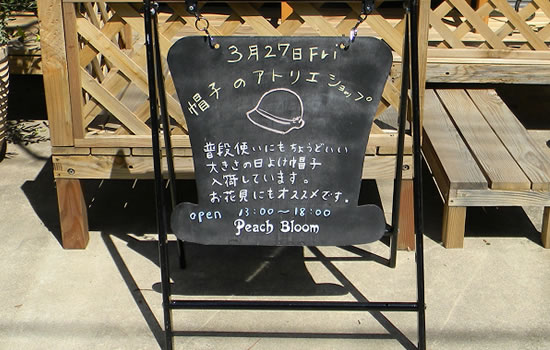 3月27日Fri
帽子のアトリエショップ
普段使いにもちょうどいい
大きさの日よけ帽子
入荷しています。
お花見にもオススメです。
open 13:00〜18:00
Peach Bloom